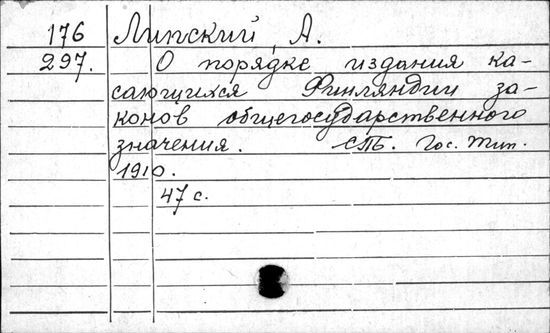 176 Липский, А.
297. О порядке издания ка-
сающихся Финляндии за-
конов общегосударственного
значения. СПБ. Гос. тип.
1910.
47 с.